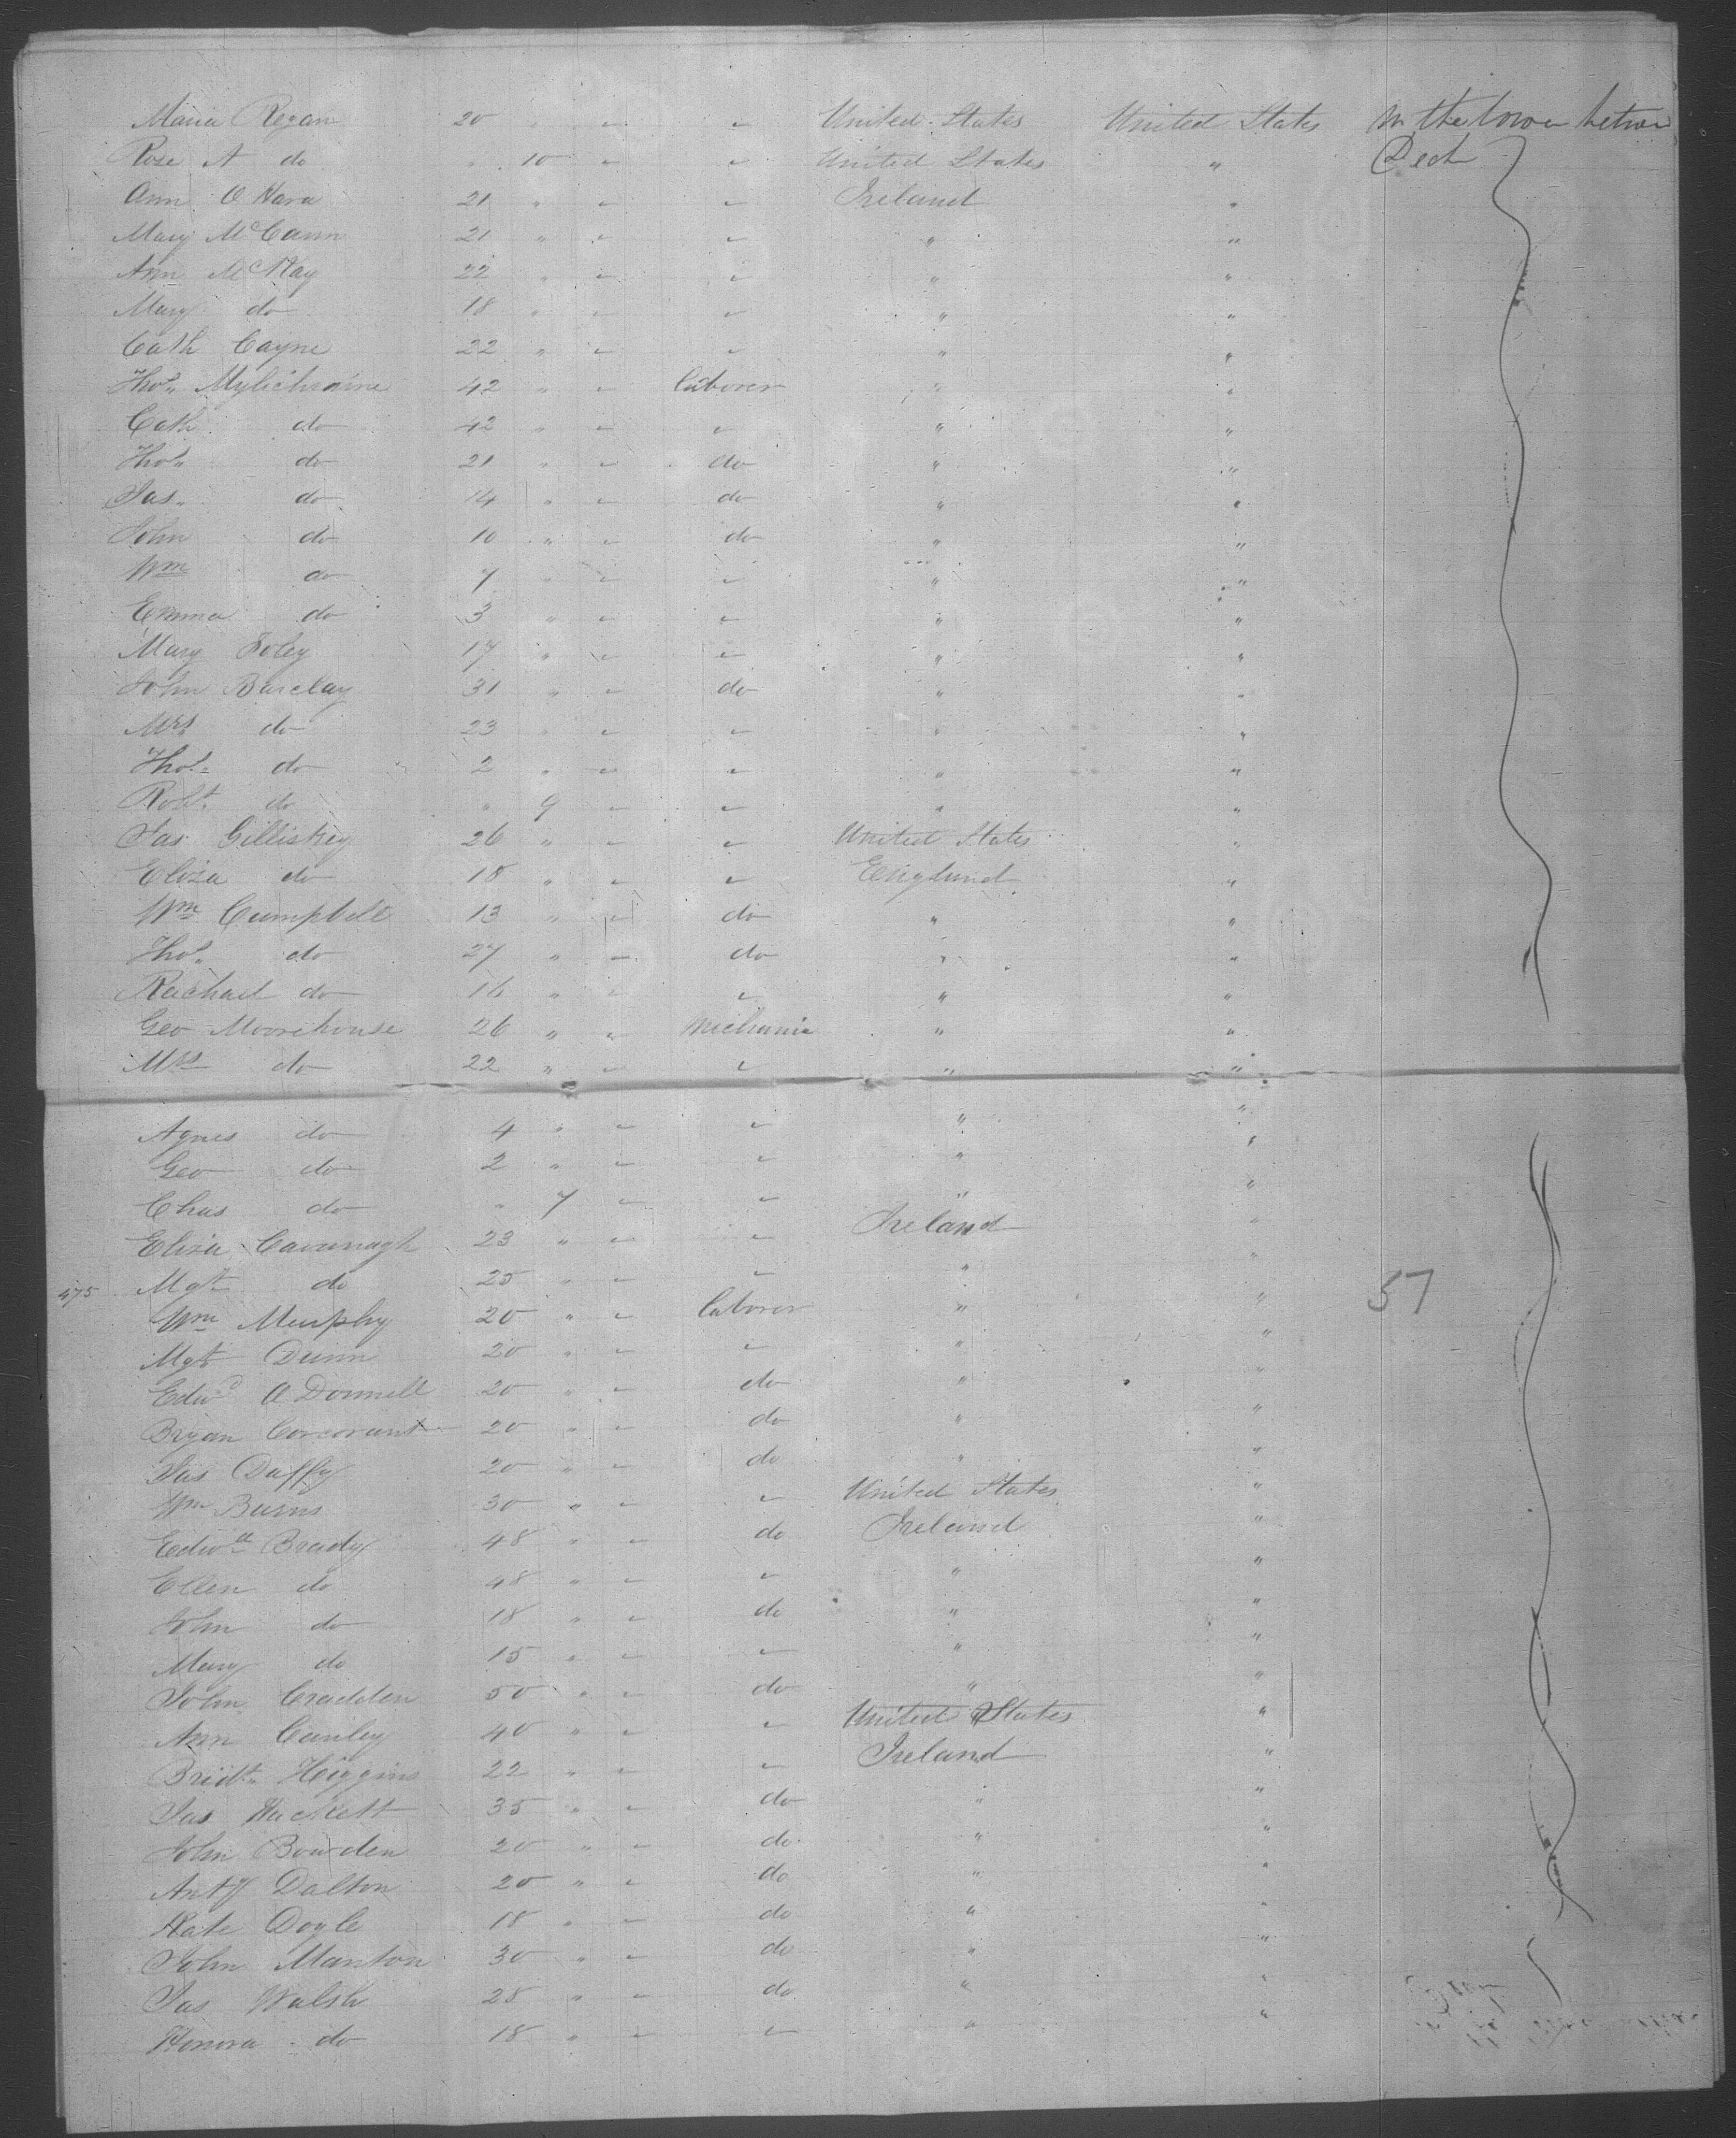 Maria Regan 20 " " " United States United States In the lower between
Rose A do " 10 " " United States " Deck
Ann O Hara 21 " " " Ireland "
Mary McCann 21 " " " " "
Ann McKay 22 " " " " "
Mary do 18 " " " " "
Cath Cayne 22 " " " " "
Thos. 42 " " laborer " "
Cath do 42 " " " " "
Thos. do 21 " " do " "
Jas. do 14 " " do " "
John do 10 " " do " "
Wm do 7 " " " " "
Emma do 3 " " " " "
Mary Foley 17 " " " " "
John Barclay 31 " " do " "
Mrs do 23 " " " " "
Thos. do 2 " " " " "
Robt. do " 9 " " " "
Jas. Gilliskey 26 " " " United States "
Eliza do 18 " " " England "
Wm Campbell 13 " " do " "
Thos. do 27 " " do " "
Rachael do 16 " " " " "
Geo Moorehouse 26 " " Mechanic " "
Mrs do 22 " " " " "
Agnes do 4 " " " " "
Geo do 2 " " " " "
Chas do " 7 " " " "
Eliza Cavanagh 23 " " " Ireland "
475 Mgt do 25 " " " " " 57
Wm Murphy 20 " " laborer " "
Mgt Dunn 20 " " " " "
Edwd O Donnell 20 " " do " "
Bryan Corcorant 20 " " do " "
Jas Duffy 20 " " do " "
Wm Burns 30 " " " United States "
Edwd Brady 48 " " do Ireland "
Ellen do 48 " " " " "
John do 18 " " do " "
Mary do 15 " " " " "
John Cradden 50 " " do " "
Ann Canley 40 " " " United States "
Bridt. Higgins 22 " " " Ireland "
Jas Hackett 35 " " do " "
John Bowden 20 " " do " "
Anty Dalton 20 " " do " "
Kate Doyle 18 " " do " "
John Manton 30 " " do " "
Jas Walsh 28 " " do " "
Honora do 18 " " " " "